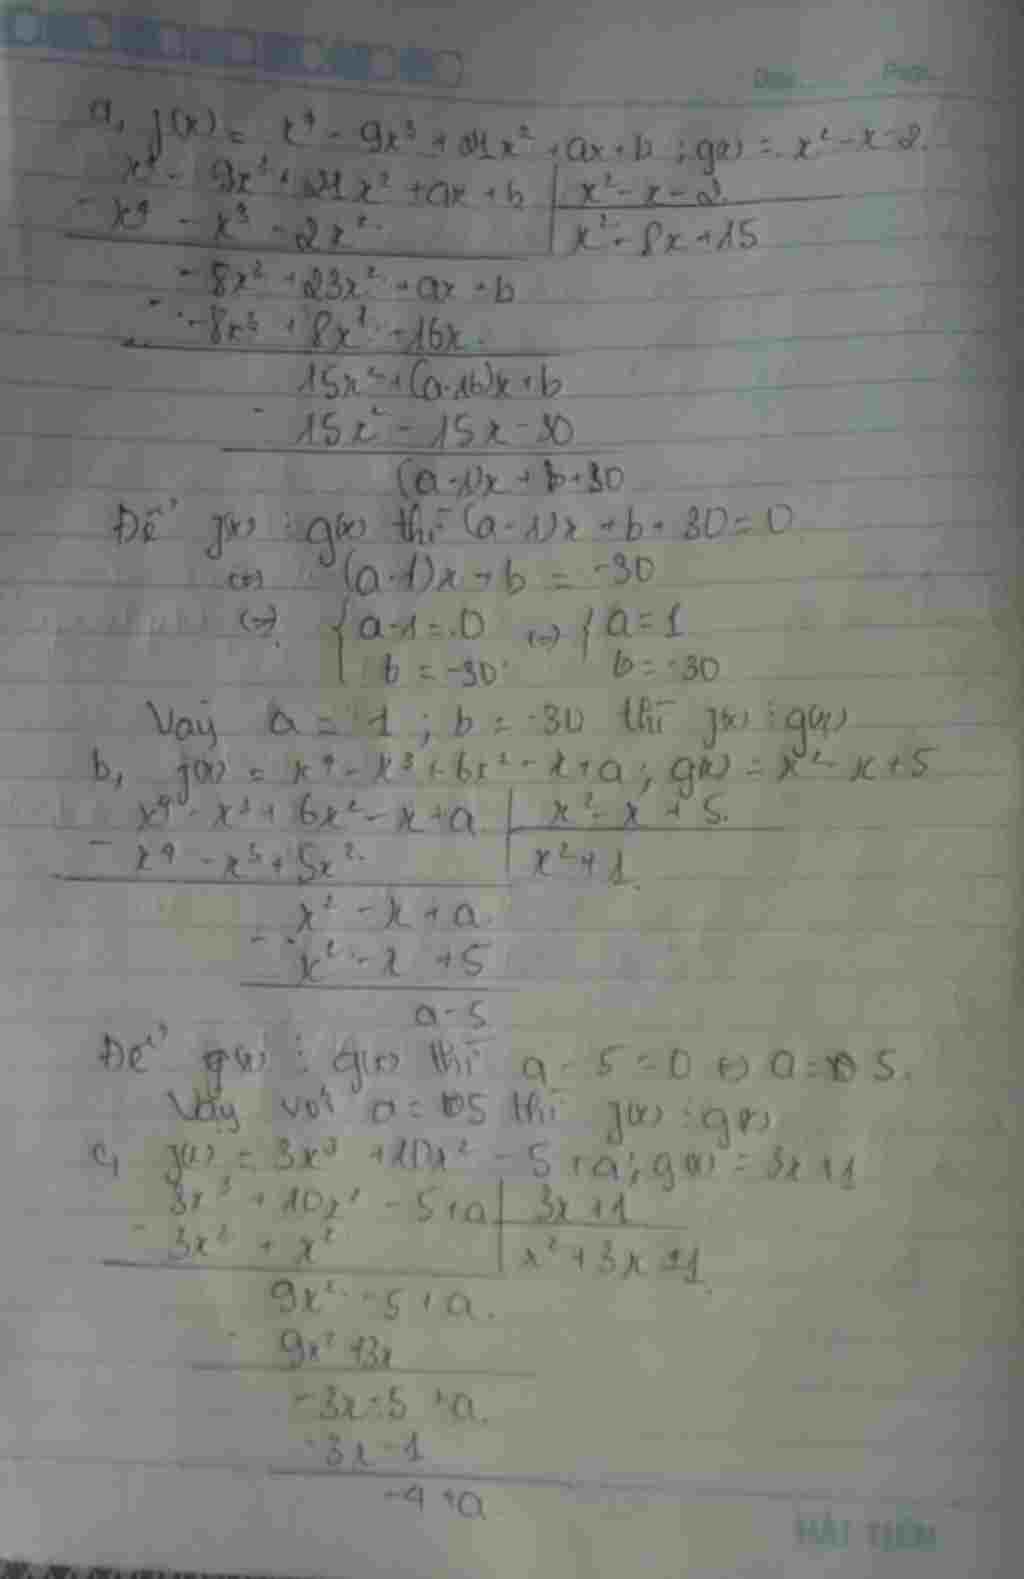 Day Page
a, f(x) = x⁴ - 9x³ + 21x² + ax + b ; g(x) = x² - x - 2.
x⁴ - 9x³ + 21x² + ax + b | x² - x - 2
- x⁴ - x³ - 2x² | x² - 8x + 15
- 8x³ + 23x² + ax + b
- -8x³ + 8x² + 16x.
15x² + (a-16)x + b
- 15x² - 15x - 30
(a-1)x + b + 30
Để f(x) ⋮ g(x) thì (a-1)x + b + 30 = 0
(=) (a-1)x + b = -30
(=) { a-1 = 0 (=) { a = 1
b = -30 b = -30
Vậy a = 1 ; b = -30 thì f(x) ⋮ g(x)
b, f(x) = x⁴ - x³ + 6x² - x + a ; g(x) = x² - x + 5
x⁴ - x³ + 6x² - x + a | x² - x + 5.
- x⁴ - x³ + 5x² | x² + 1.
x² - x + a.
- x² - x + 5
a - 5
Để g(x) ⋮ g(x) thì a - 5 = 0 (=) a = 5.
Vậy với a = 5 thì f(x) ⋮ g(x)
c, f(x) = 3x³ + 10x² - 5 + a ; g(x) = 3x + 1
3x³ + 10x² - 5 + a | 3x + 1
- 3x³ + x² | x² + 3x - 1.
9x² - 5 + a.
- 9x² + 3x
- 3x - 5 + a.
- 3x - 1
-4 + a
HẢI TIẾN